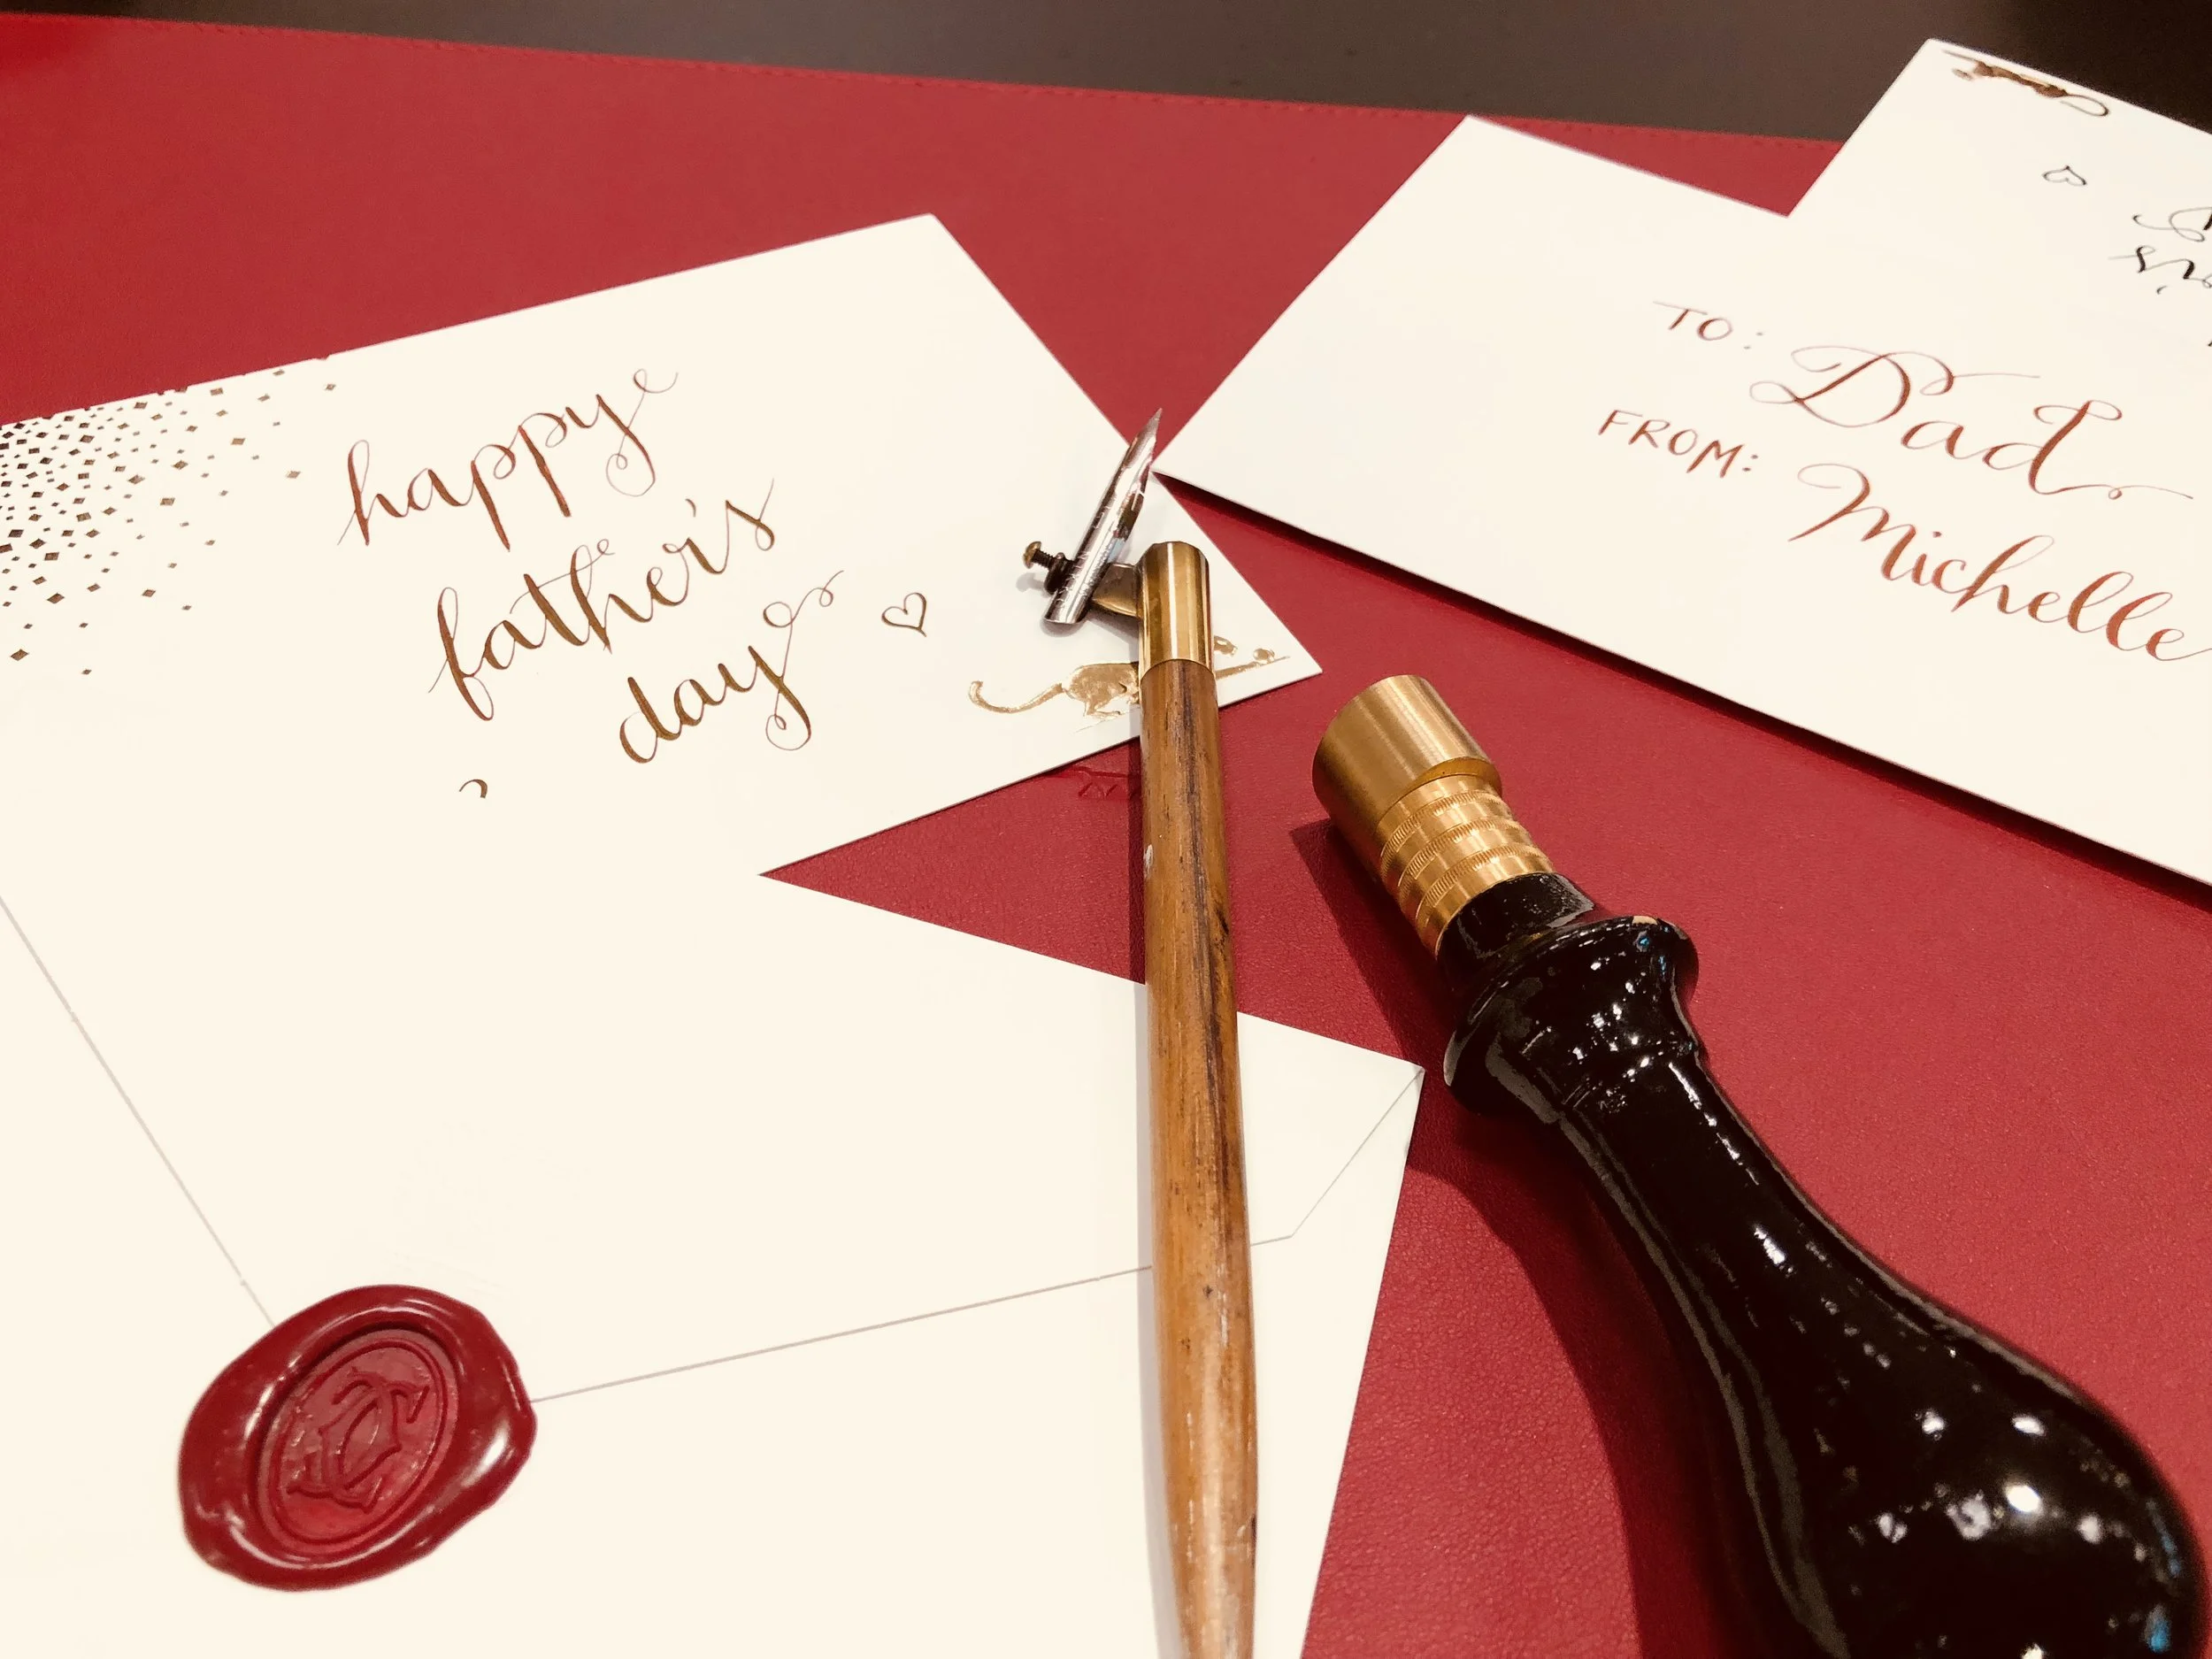 happy
father's
day
TO: Dad
FROM: Michelle